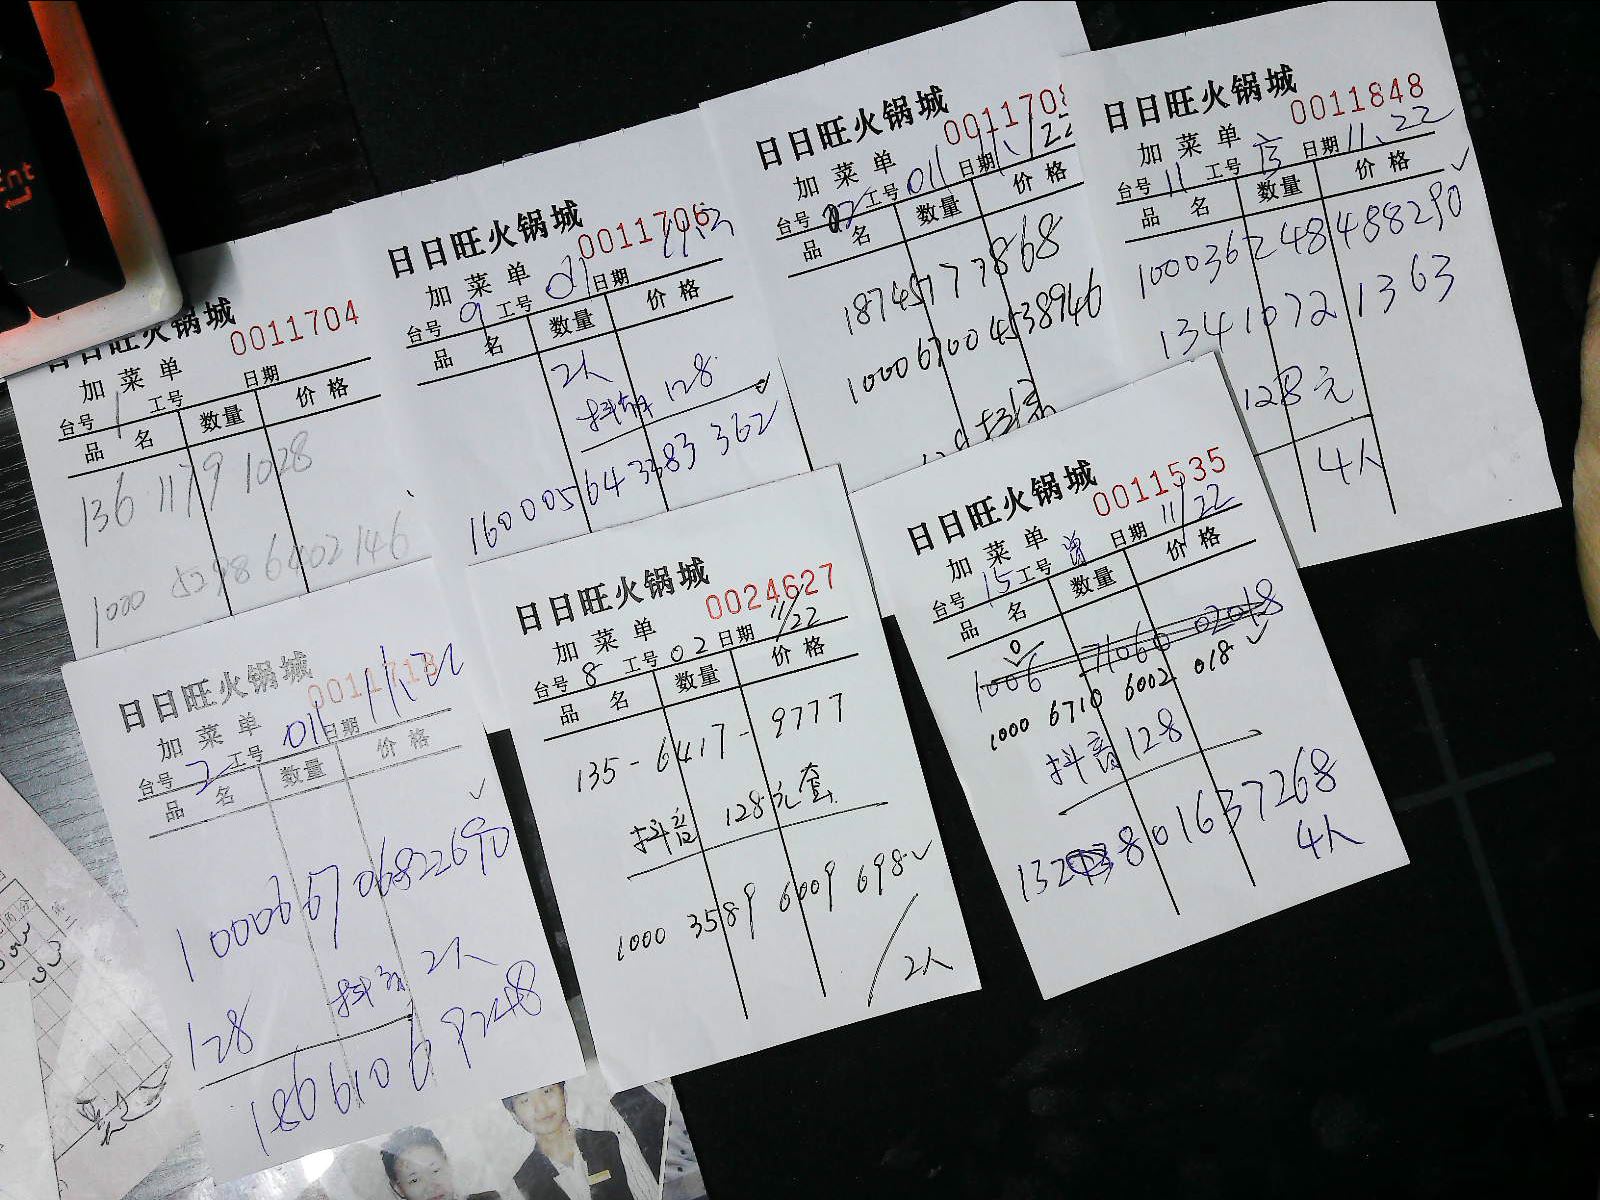 日日旺火锅城
0011704
加菜单
日期
台号 1 工号
品名 数量 价格
136 1179 1028
1000 52986402146
日日旺火锅城
0011706
加菜单
台号 9 工号 01 日期
品名 数量 价格
2人
抖音 128
160005643383362
日日旺火锅城
001170
加菜单
台号 02 工号 011 日期 11、22
品名 数量 价格
18745777868
100067004538946
日日旺火锅城
0011848
加菜单
台号 11 工号 日期 11、22
品名 数量 价格
100036248488290
1341072 1363
128元
4人
日日旺火锅城
0011718
加菜单
台号 2 工号 01 日期 11、22
品名 数量 价格
100066706822690
128 抖音 2人
18661069248
日日旺火锅城
0024627
加菜单 11/22
台号 8 工号 02 日期
品名 数量 价格
135-6417-9777
抖音 128元套
1000 3589 6009 698
2人
日日旺火锅城
0011535
加菜单 11/22
台号 15 工号 日期
品名 数量 价格
1006 71060 02018
1000 6710 6002 018
抖音 128
132 801637268
4人
Ent